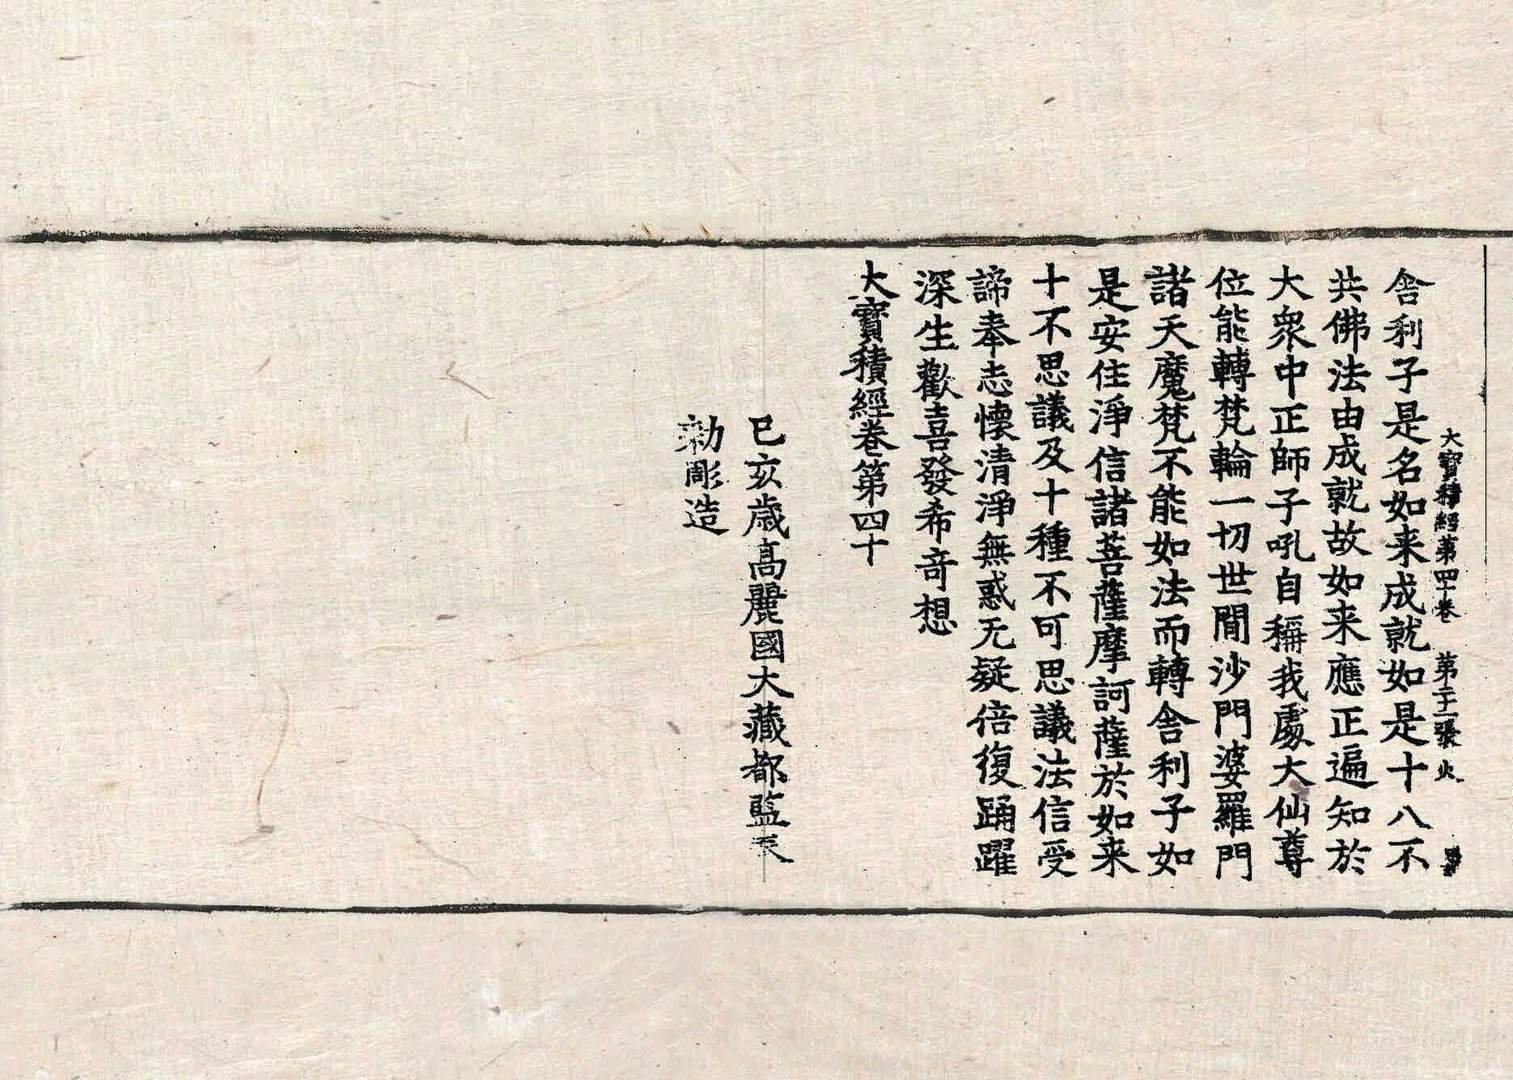 大寶積經第四十卷 第二十二張 火
舍利子是名如来成就如是十八不
共佛法由成就故如来應正遍知於
大衆中正師子吼自稱我處大仙尊
位能轉梵輪一切世閒沙門婆羅門
諸天魔梵不能如法而轉舍利子如
是安住淨信諸菩薩摩訶薩於如来
十不思議及十種不可思議法信受
諦奉志懷清淨無惑无疑倍復踊躍
深生歡喜發希奇想
大寶積經卷第四十
已亥歳高麗國大藏都監奉
勑彫造